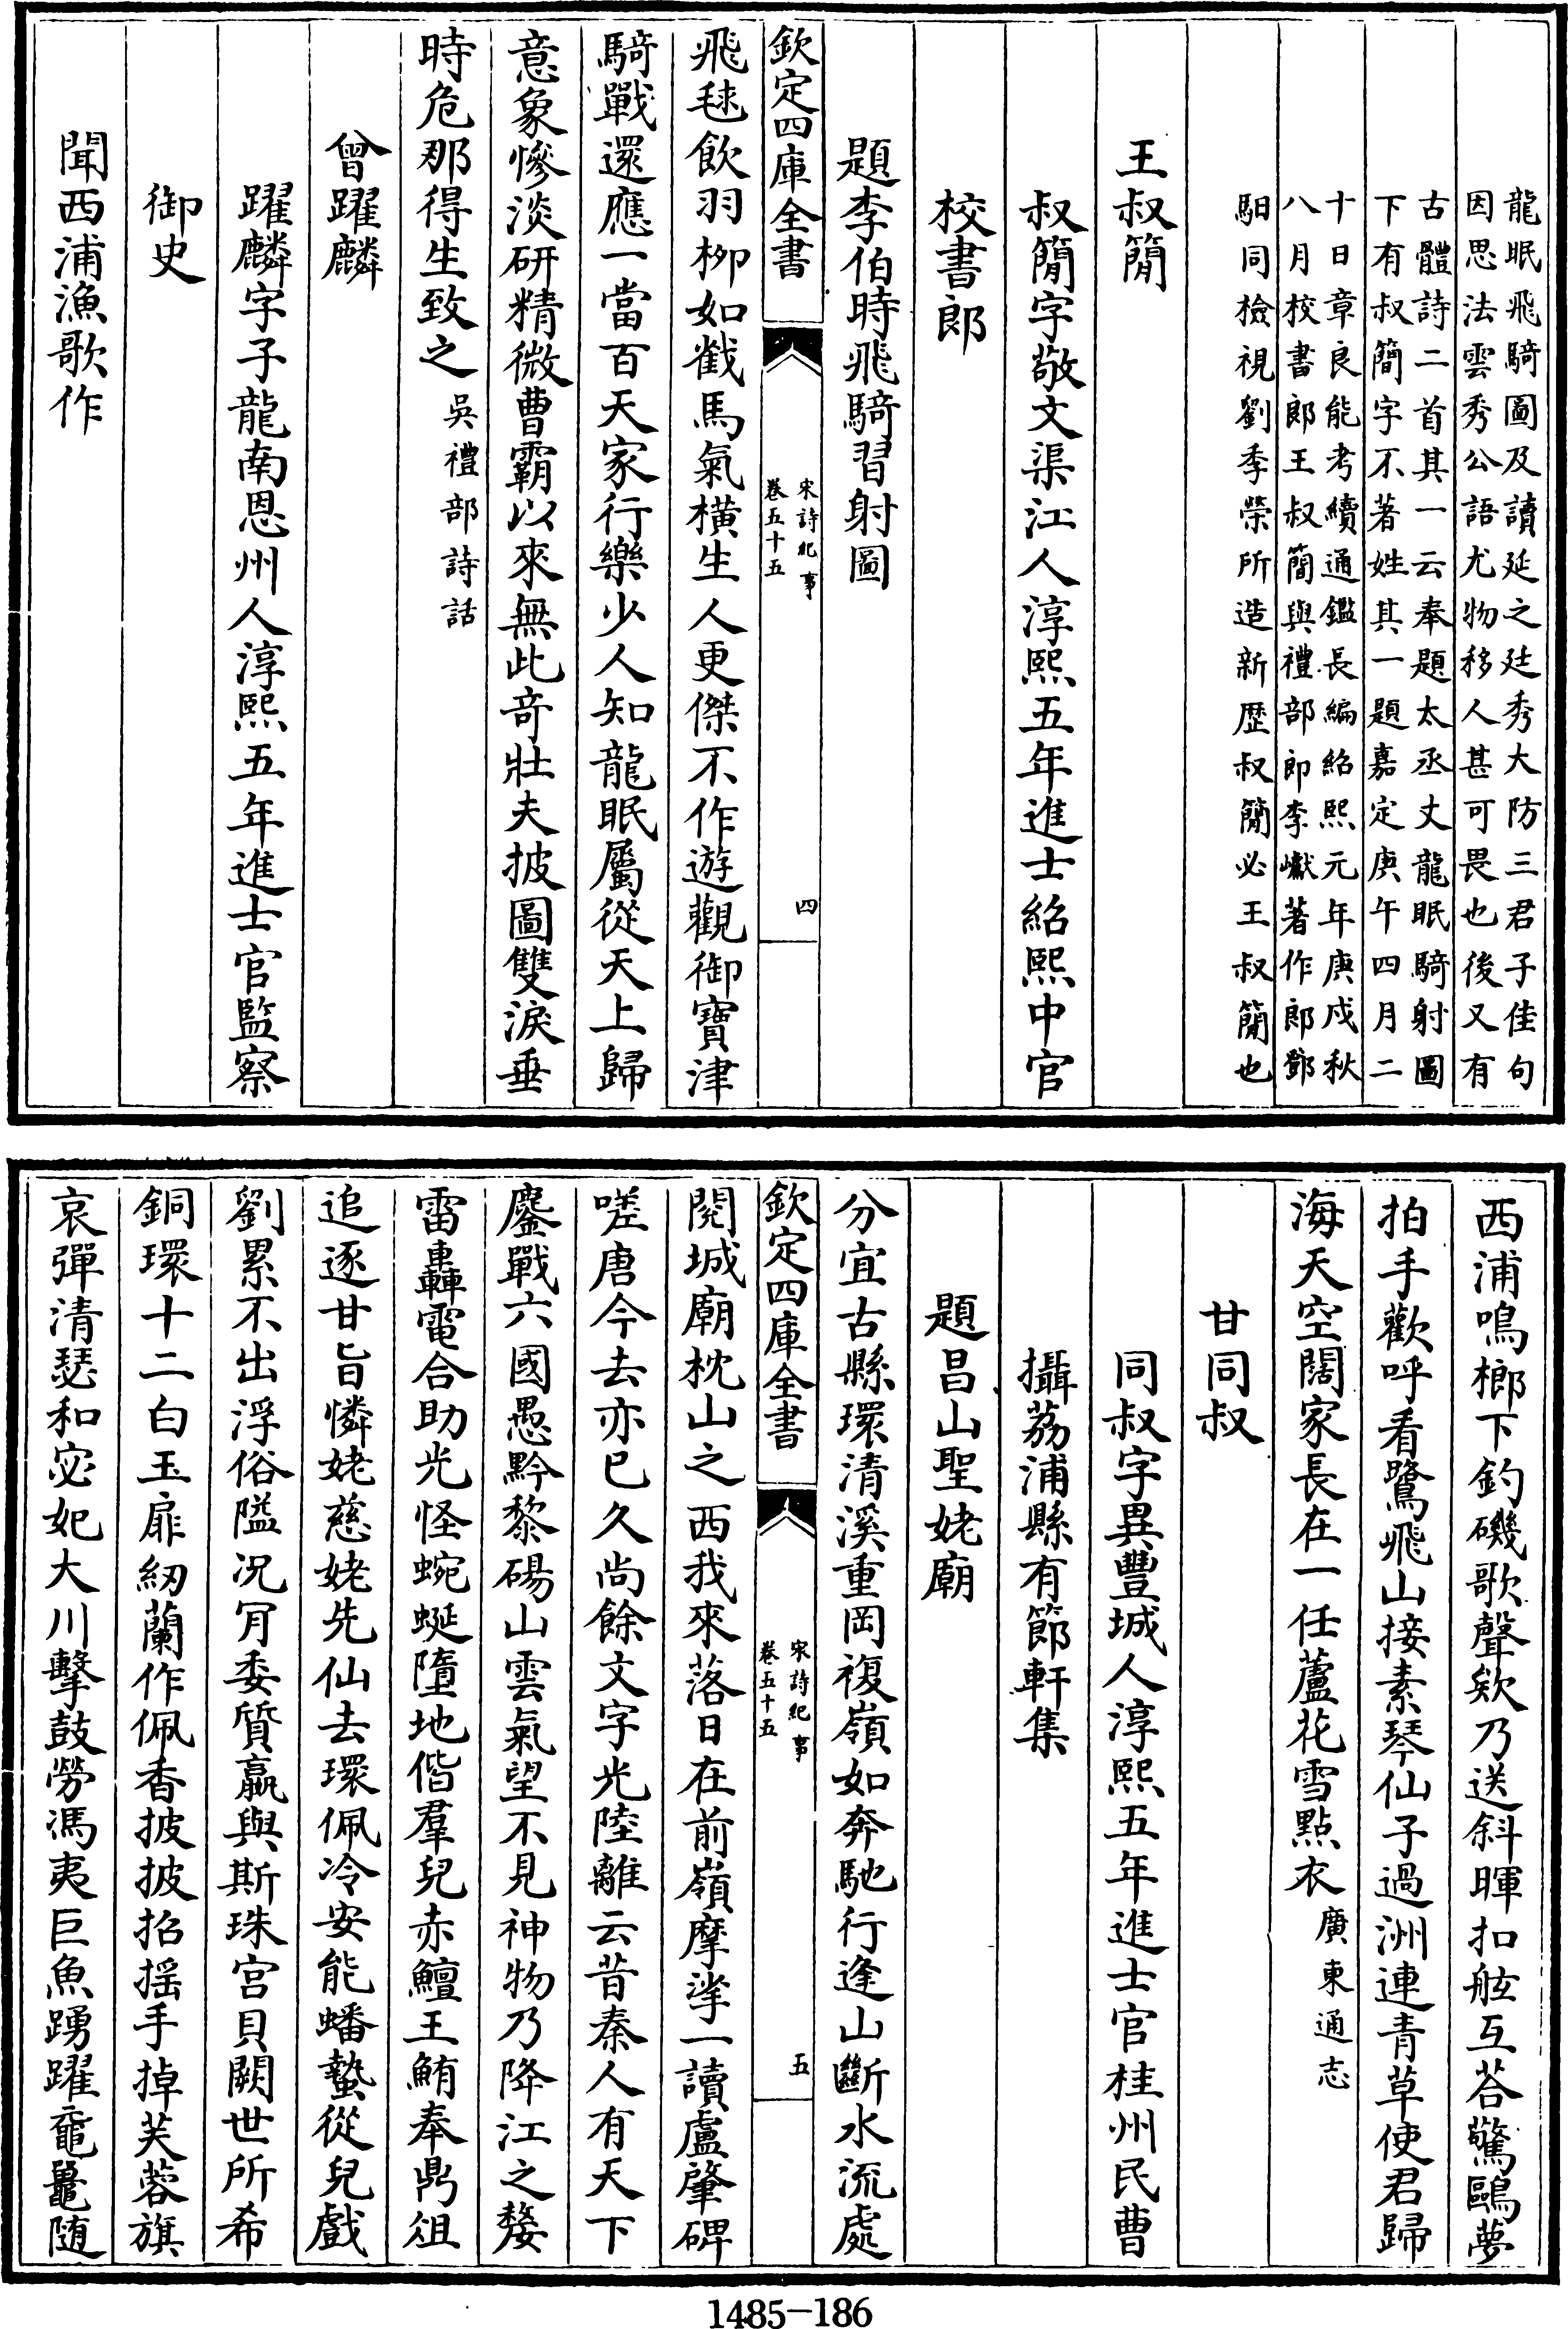 龍眠飛騎圖及讀延之廷秀大防三君子佳句
因思法雲秀公語尤物移人甚可畏也後又有
古體詩二首其一云奉題太丞丈龍眠騎射圖
下有叔簡字不著姓其一題嘉定庚午四月二
十日章良能考續通鑑長編紹熙元年庚戌秋
八月校書郎王叔簡與禮部郎李巘著作郎鄧
馹同檢視劉季榮所造新歴叔簡必王叔簡也
王叔簡
叔簡字敬文渠江人淳熙五年進士紹熙中官
校書郎
題李伯時飛騎習射圖
欽定四庫全書
宋詩紀事
卷五十五
四
飛毬飲羽柳如截馬氣橫生人更傑不作遊觀御寶津
騎戰還應一當百天家行樂少人知龍眠屬從天上歸
意象慘淡研精微曹霸以來無此奇壯夫披圖雙淚垂
時危那得生致之吳禮部詩話
曾躍麟
躍麟字子龍南恩州人淳熙五年進士官監察
御史
聞西浦漁歌作
西浦鳴榔下釣磯歌聲欸乃送斜暉扣舷互荅驚鷗夢
拍手歡呼看鷺飛山接素琴仙子過洲連青草使君歸
海天空闊家長在一任蘆花雪點衣廣東通志
甘同叔
同叔字異豐城人淳熙五年進士官桂州民曹
攝荔浦縣有節軒集
題昌山聖姥廟
分宜古縣環清溪重岡複嶺如奔馳行逢山斷水流處
欽定四庫全書
宋詩紀事
卷五十五
五
閱城廟枕山之西我來落日在前嶺摩挲一讀盧肇碑
嗟唐今去亦已久尚餘文字光陸離云昔秦人有天下
鏖戰六國愚黔黎碭山雲氣望不見神物乃降江之嫠
雷轟電合助光怪蜿蜒墮地偕羣兒赤鱣王鮪奉鼎俎
追逐甘旨憐姥慈姥先仙去環佩冷安能蟠蟄從兒戲
劉累不出浮俗隘况肎委質嬴與斯珠宫貝闕世所希
銅環十二白玉扉紉蘭作佩香披披招揺手掉芙蓉旗
哀彈清瑟和宓妃大川擊鼓勞馮夷巨魚踴躍黿鼉随
1485-186